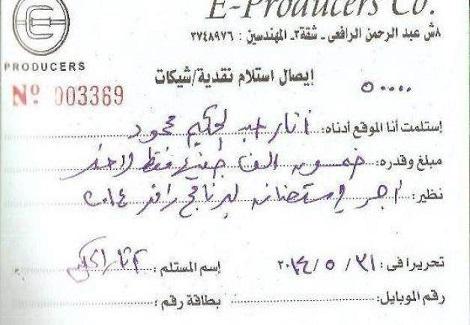 E-Producers Co.
٨ش عبد الرحمن الرافعى - شقة٣ - المهندسين : ٣٧٤٨٩٧٦
PRODUCERS
إيصال استلام نقدية/شيكات
٥٠٠٠٠
Nº 003369
إستلمت أنا الموقع أدناه: آثار عبد الحكيم محمود
مبلغ وقدره: خمسون الف جنيه فقط لاغير
نظير: اجر استضافه لبرنامج رامز ٢٠١٤
تحريرا فى: ٣١ / ٥ / ٢٠١٤ إسم المستلم: آثار الحكيم
رقم الموبايل: بطاقة رقم: